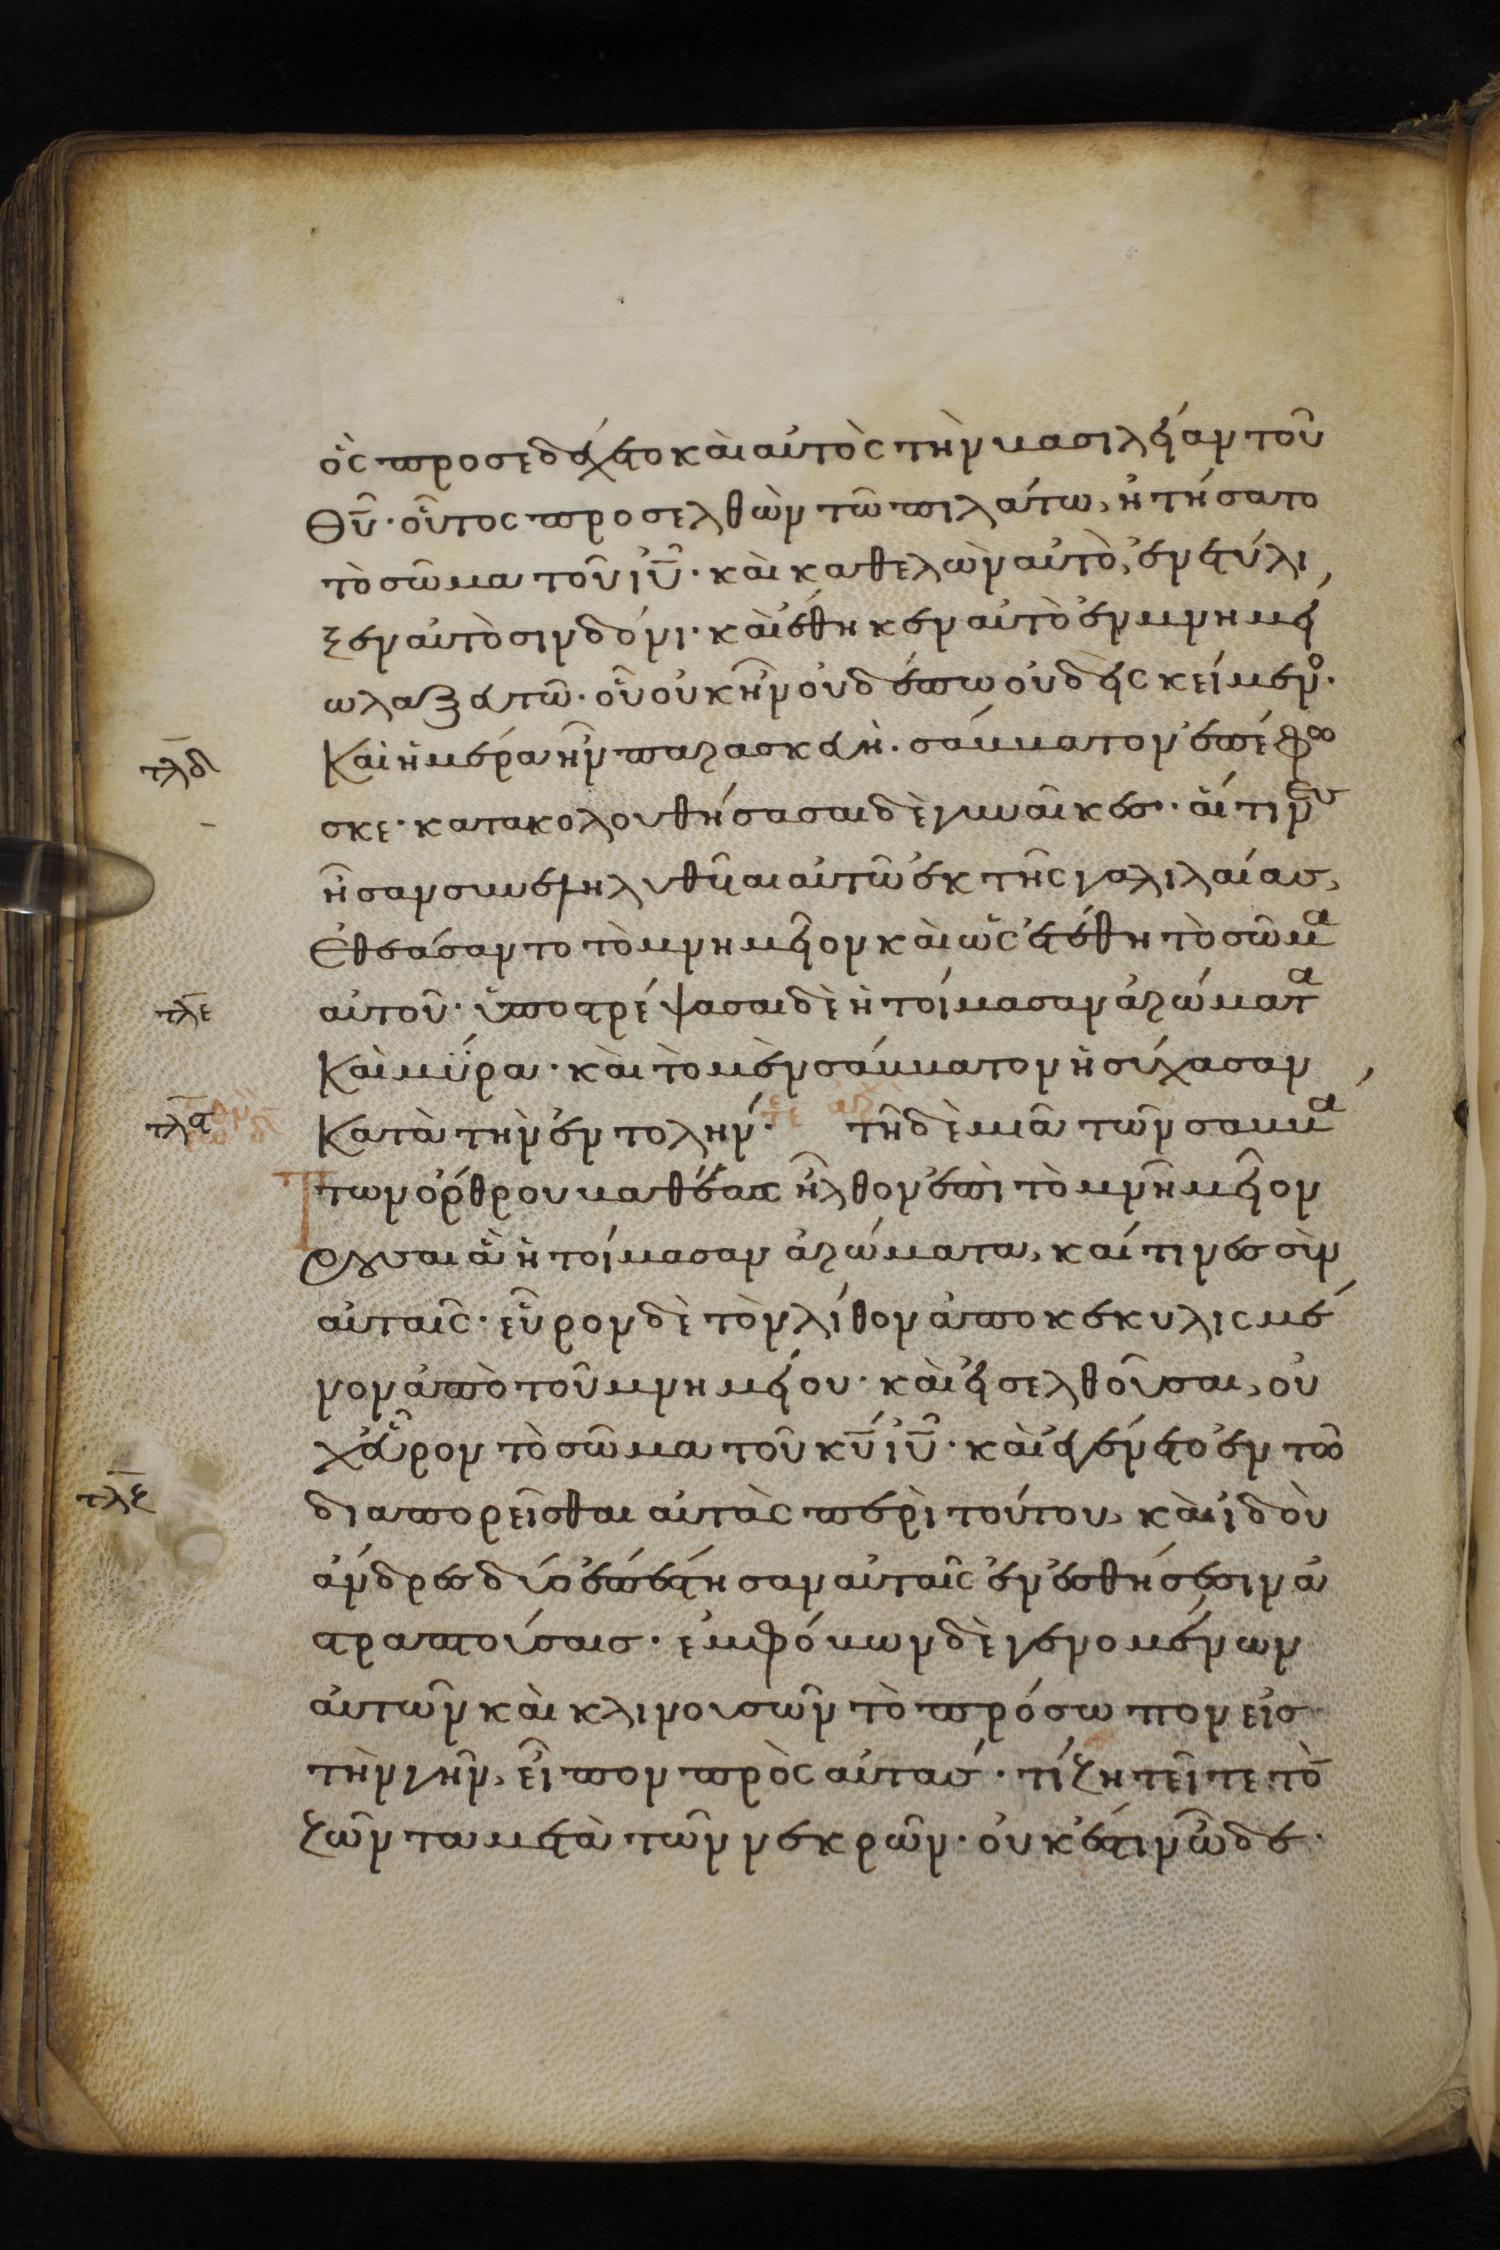 ὃς προσεδέχετο καὶ αὐτὸς τὴν βασιλείαν τοῦ
Θῦ· οὗτος προσελθὼν τῶ πιλάτω, ἠτήσατο
τὸ σῶμα τοῦ ἰῦ· καὶ καθελὼν αὐτὸ, ἐνετύλι
ξεν αὐτὸ σινδόνι· καὶ ἔθηκεν αὐτὸ ἐν μνημεί
ω λαξευτῶ· οὗ οὐκ ἦν οὐδέπω οὐδεὶς κείμενο·
τλδ Καὶ ἡμέρα ἦν παρασκευὴ· σάββατον ἐπέφω
σκε· κατακολουθήσασαι δὲ γυναῖκες· αἵτινες
ἦσαν συνεληλυθῦιαι αὐτῶ ἐκ τῆς γαλιλαίας,
ἐθεάσαντο τὸ μνημεῖον καὶ ὡς ἐτέθη τὸ σῶμα
τλε αὐτοῦ· ὑποστρέψασαι δὲ ἡτοίμασαν ἀρώματα
Καὶ μύρα· καὶ τὸ μὲν σάββατον ἡσύχασαν
τλϛ Κατὰ τὴν ἐντολήν· τῆ δὲ μιᾶ τῶν σαββά
των ὄρθρου βαθέος ἦλθον ἐπὶ τὸ μνῆμεῖον
φέρουσαι ἃ ἡτοίμασαν ἀρώματα, καί τινες σὺν
αὐταῖς· εὗρον δὲ τὸν λίθον ἀποκεκυλισμέ
νον ἀπὸ τοῦ μνημείου· καὶ εἰσελθοῦσαι, οὐ
χεὗρον τὸ σῶμα τοῦ κῦ ἰῦ· καὶ ἐγένετο ἐν τῶ
τλζ διαπορεῖσθαι αὐτὰς περὶ τούτου, καὶ ἰδοὺ
ἄνδρες δύο ἐπέστησαν αὐταῖς ἐν ἐσθήσεσιν ἀ
στραπτούσαις· ἐμφόβων δὲ γενομένων
αὐτῶν καὶ κλινουσῶν τὸ πρόσωπον εἰς
τὴν γῆν, εἶπον πρὸς αὐτάς· τί ζητεῖτε τὸ
ζῶντα μετὰ τῶν νεκρῶν· οὐκ ἔστιν ὧδε·